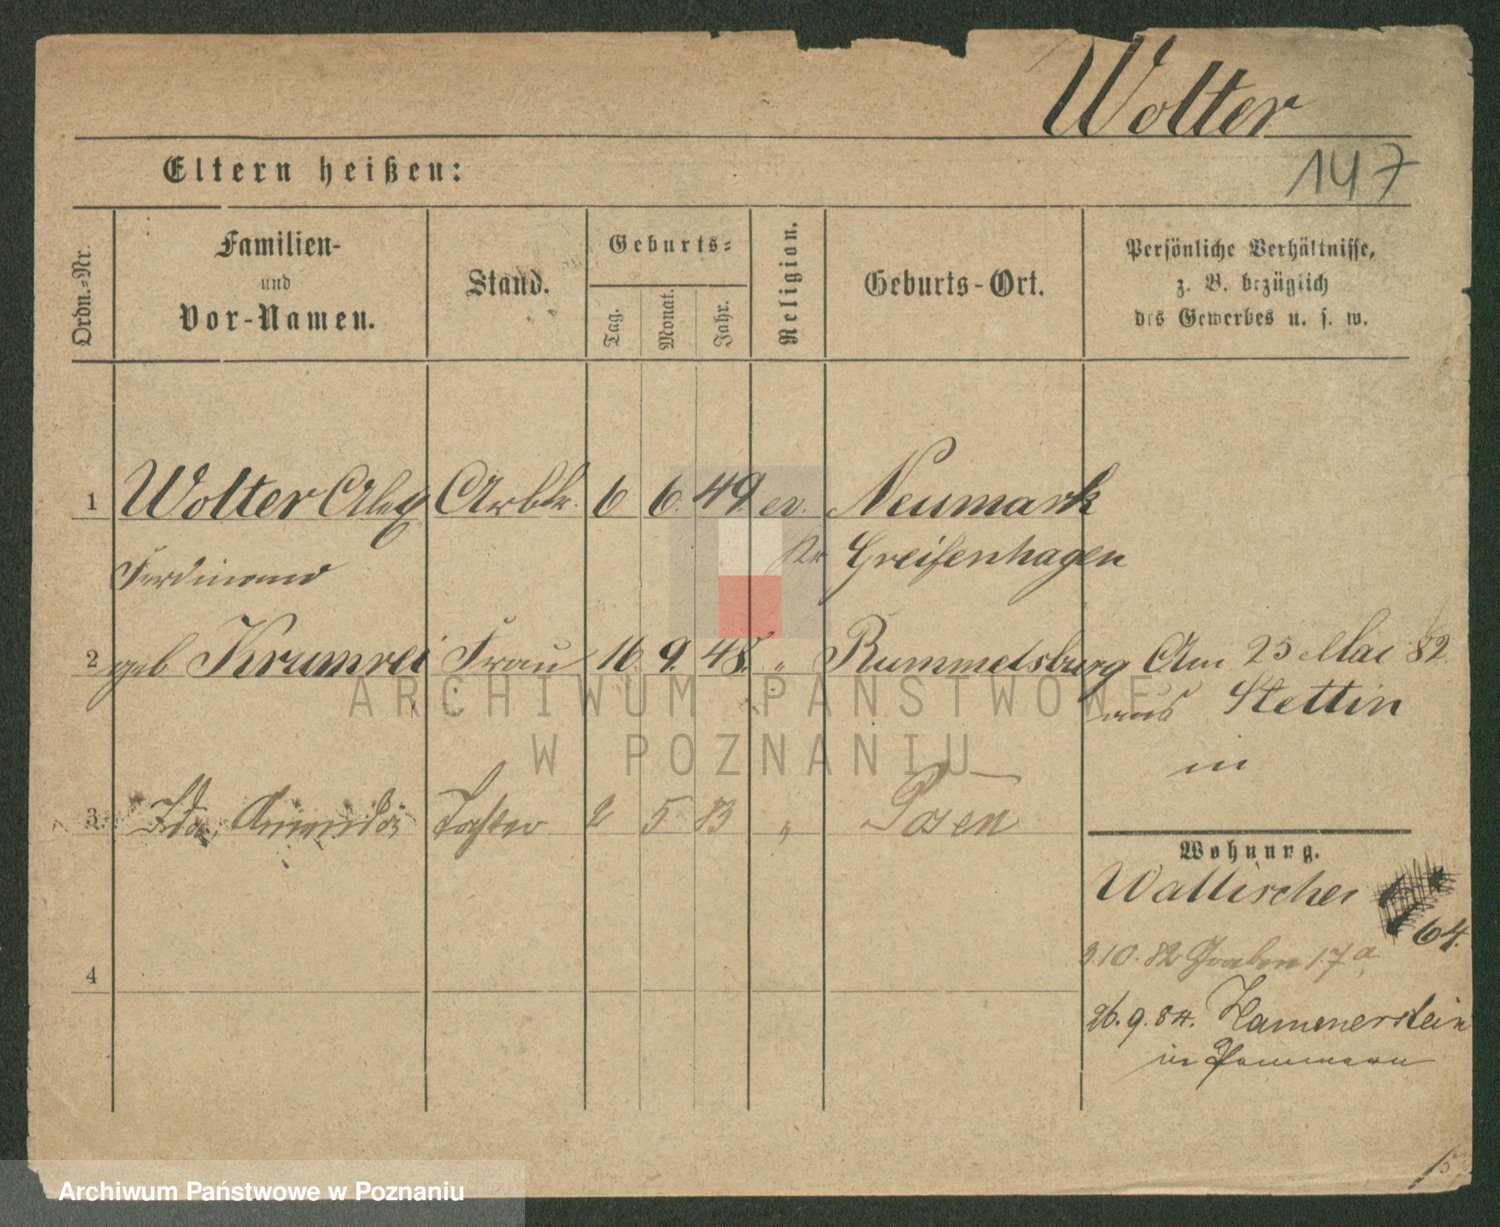 Wolter
147
Eltern heißen:
Ordn.-Nr.
Familien-
und
Vor-Namen.
Stand.
Geburts-
Tag.
Monat.
Jahr.
Religion.
Geburts-Ort.
Persönliche Verhältnisse,
z. B. bezüglich
des Gewerbes u. s. w.
1 Wolter Alex Arbtr. 6 6. 49 ev. Neumark
Ferdinand Kr Greifenhagen
2 geb Krumrei Frau 16. 9. 48. " Rummelsburg Am 25 Mai 82
aus Stettin
in
3 Ida, Tochter 2 5 83 " Posen
Wohnung.
Wallischei
64.
3.10.82 Graben 17a
4
26.9.84. Hammerstein
in Pommern
ARCHIWUM PAŃSTWOWE
W POZNANIU
Archiwum Państwowe w Poznaniu